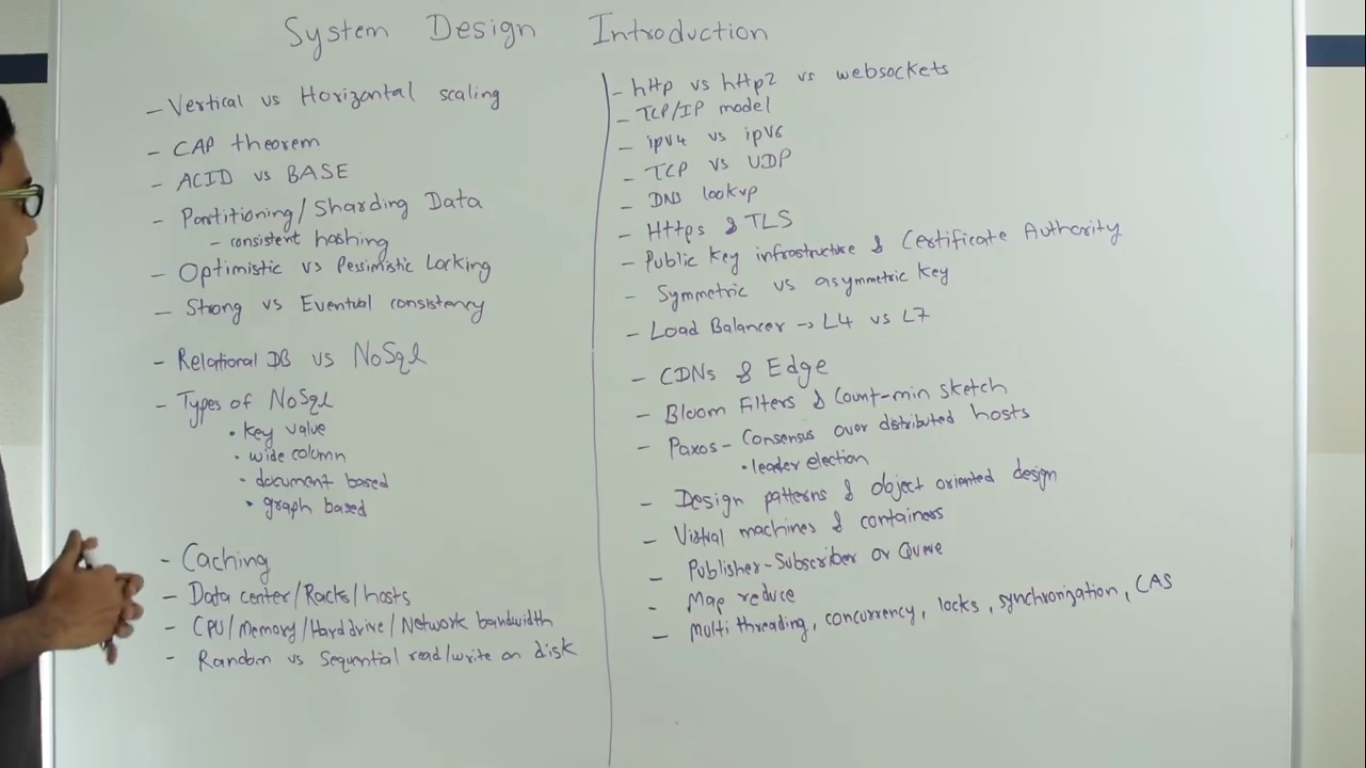 System Design Introduction
- Vertical vs Horizontal scaling
- CAP theorem
- ACID vs BASE
- Partitioning/Sharding Data
- consistent hashing
- Optimistic vs Pessimistic Locking
- Strong vs Eventual consistency
- Relational DB vs NoSql
- Types of NoSql
• key value
• wide column
• document based
• graph based
- Caching
- Data center/Racks/hosts
- CPU/Memory/Hard drive/Network bandwidth
- Random vs Sequential read/write on disk
- http vs http2 vs websockets
- TCP/IP model
- ipv4 vs ipv6
- TCP vs UDP
- DNS lookup
- Https & TLS
- Public key infrastructure & Certificate Authority
- Symmetric vs asymmetric key
- Load Balancer → L4 vs L7
- CDNs & Edge
- Bloom Filters & Count-min sketch
- Paxos - Consensus over distributed hosts
• leader election
- Design patterns & object oriented design
- Virtual machines & containers
- Publisher-Subscriber or Queue
- Map reduce
- Multi threading, concurrency, locks, synchronization, CAS